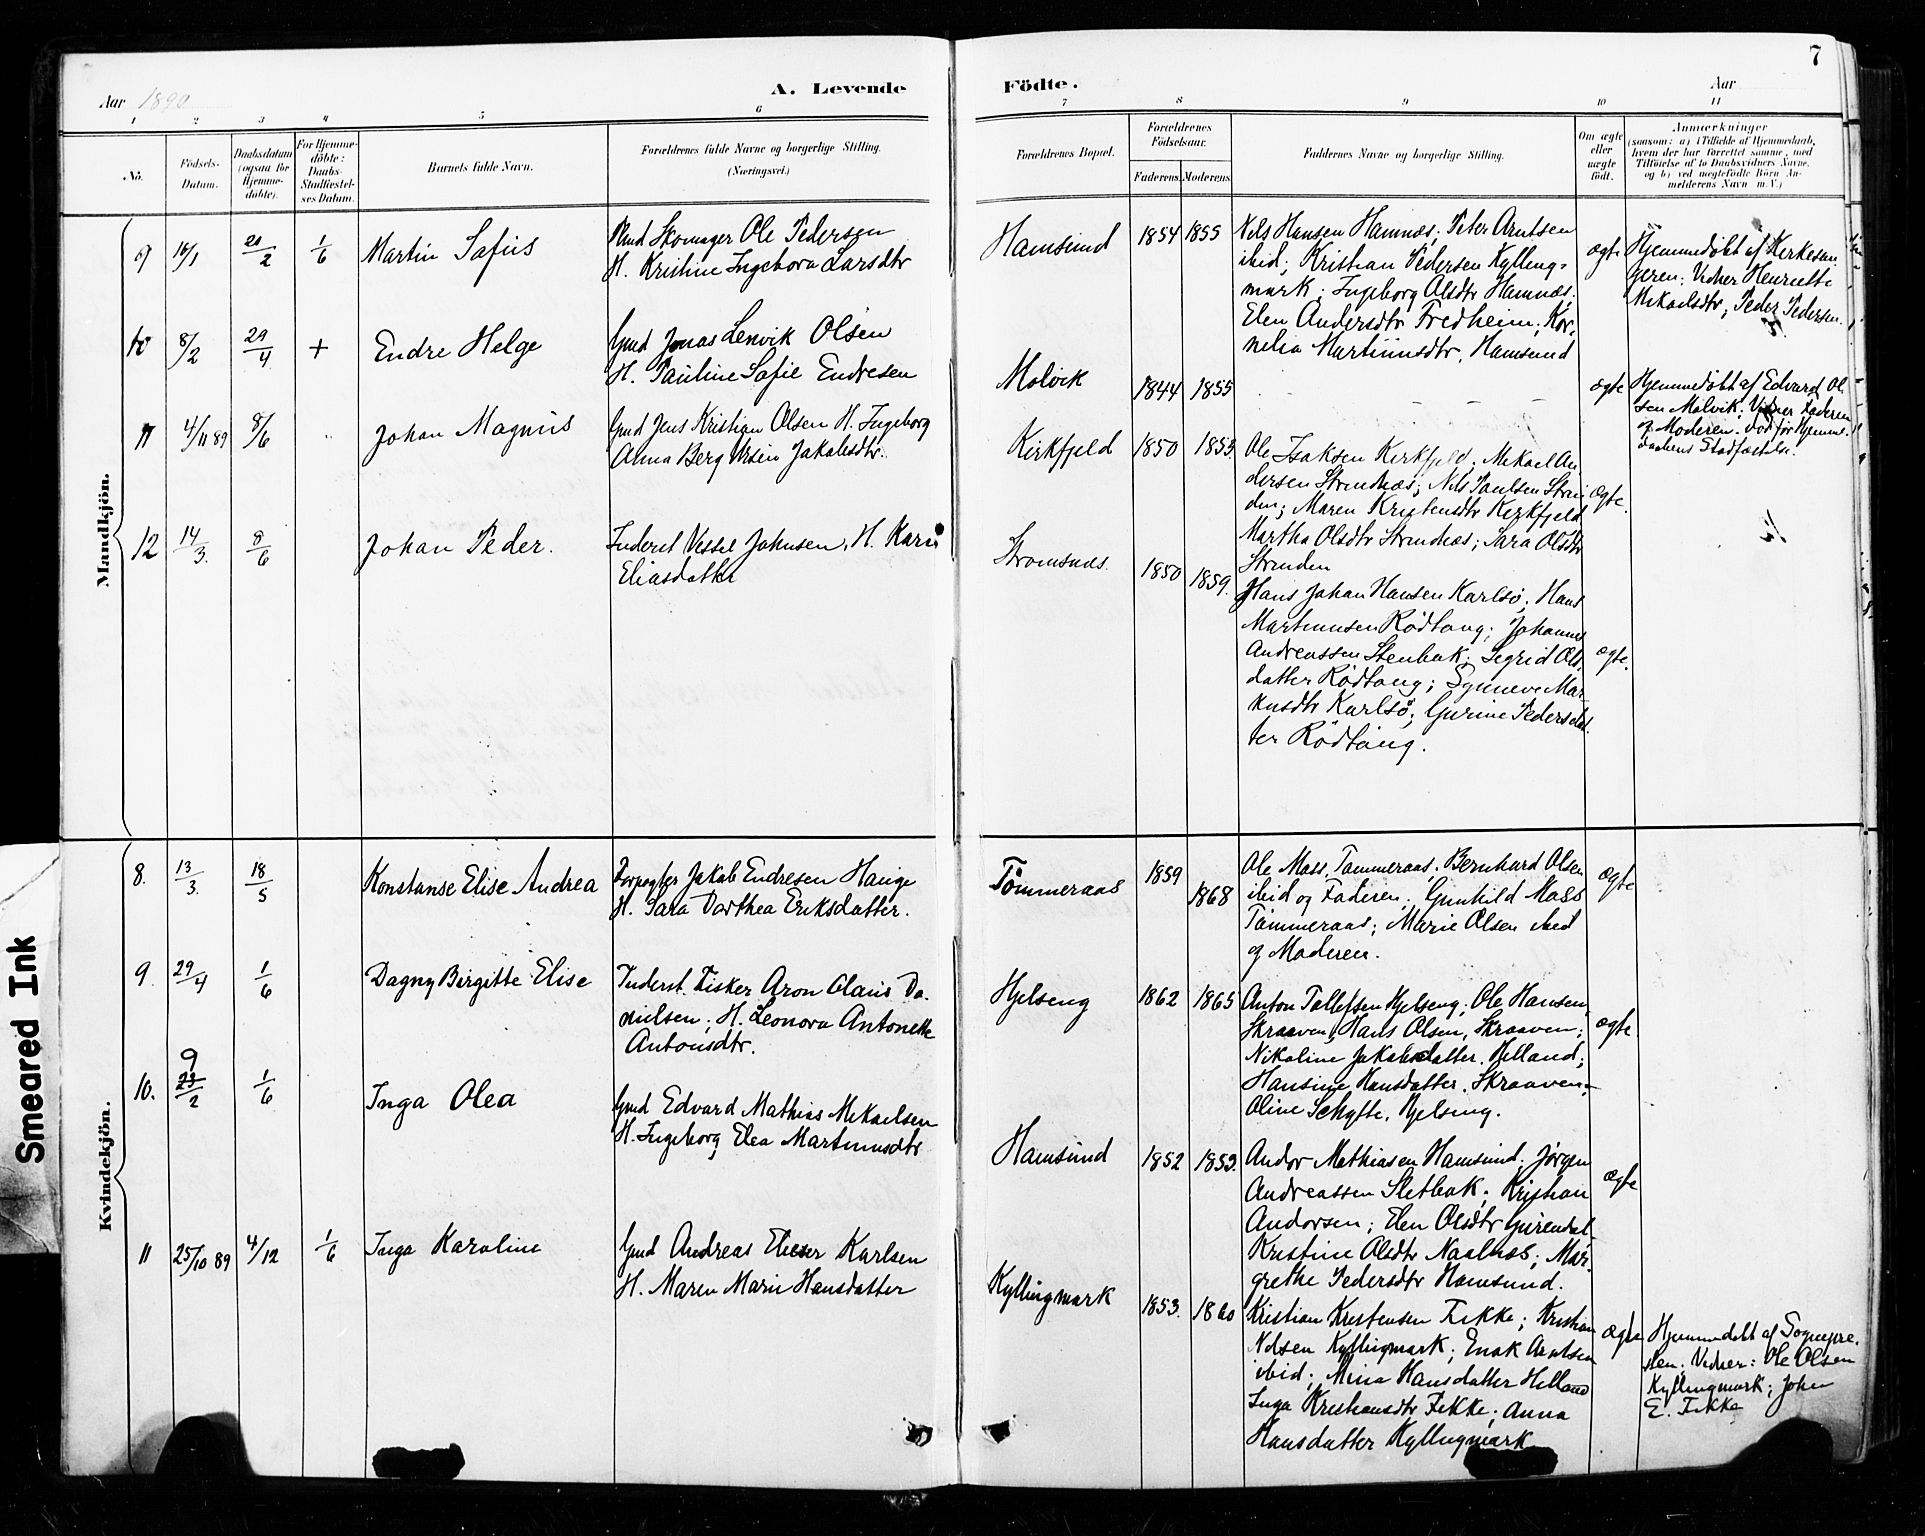 Smeared Ink
7
Aar 1890
A. Levende
Födte.
Aar
1 2 3 4 5 6
7 8 9 10 11
No.
Födsels-
Datum.
Daabsdatum
(ogsaa for
Hjemme-
døbte).
For Hjemme-
döbte:
Daabs-
Stadfæstel-
ses Datum.
Barnets fulde Navn.
Forældrenes fulde Navne og borgerlige Stilling.
(Næringsvei.)
Forældrenes Bopæl.
Forældrenes
Födselsaar.
Faderens. Moderens.
Faddernes Navne og borgerlige Stilling.
Om ægte
eller
uægte
født.
Anmærkninger
(saasom: a) i Tilfælde af Hjemmedaab,
hvem der har forrettet samme, med
Tilföielse af to Daabsvidners Navne,
og b) ved uægtefödte Börn An-
melderens Navn m. V.)
Mandkjön.
9 16/1 20/2 1/6 Martin Sofus
Skomager Ole Pedersen
H. Kristine Ingeborg Larsdtr
Hamsund 1854 1855
Nils Hansen Hamnæs; Peter Arntsen
ibid; Kristian Pedersen Kylling-
mark; Ingeborg Olsdtr Hamnæs;
Elen Andersdtr Fredheim; Kor-
nelia Martinusdtr, Hamsund
ægte
Hjemmedøbt af Kirkesan
geren. Vidner Henriette
Mikaelsdtr, Peder Pedersen.
10 8/2 29/4 + Endre Helge
Gmd Jonas Lenvik Olsen
H. Pauline Sofie Endresen
Molvik 1844 1855
ægte
Hjemmedøbt af Edvard Ol
sen Molvik; Vidner Faderen
og Moderen. Død før Hjemme-
daabens Stadfæstelse.
11 4/11 89 8/6 Johan Magnus
Gmd Jens Kristian Olsen H. Ingeborg
Anna Berg Ursin Jakobsdtr.
Kirkfjeld 1850 1853
Ole Isaksen Kirkfjeld; Mikael An
dersen Strindnæs; Nils Paulsen Strin
den; Maren Kristensdtr Kirkfjeld
Martha Olsdtr Strindnæs; Sara Olsdtr
Strinden
ægte.
12 14/3. 8/6 Johan Peder.
Inderst Vessel Johnsen, H. Karen
Eliasdatter
Stromsnæs. 1850 1859.
Hans Johan Hansen Karlsø; Hans
Martinusen Rödtang; Johannes
Andreassen Stenbak; Segrid Ols
datter Rödtang; Synneve Mar-
kusdtr Karlsø; Gurine Pedersdat-
ter Rödtang.
ægte.
Kvindekjön.
8. 13/3. 18/5 Konstanse Elise Andrea
Forpagter Jakob Endresen Hauge
H. Sara Dorthea Eriksdatter.
Tömmeraas 1859 1868
Ole Mass. Tömmeraas. Bernhard Olsen
ibid og Faderen; Gunhild Mass
Tömmeraas; Marie Olsen ibid
og Moderen.
ægte
9 29/4 1/6 Dagny Birgitte Elise
Inderst. Fisker Aron Olaus Da-
nielsen; H. Leonora Antonette
Antonsdtr.
Hjelseng 1862 1865
Anton Tollefsen Hjelseng; Ole Hansen,
Skraaven; Hans Olsen, Skraaven;
Nikoline Jakobsdatter. Helland;
Hansine Hansdatter. Skraaven;
Oline Schytte. Hjelseng.
ægte
10. 9 23/2 1/6 Inga Olea
Gmd Edvard Mathias Mikaelsen
H. Ingeborg Elea Martinusdtr
Hamsund 1852 1853.
Andor Mathiasen Hamsund; Jörgen
Andreassen Sletbak; Kristian
Andorsen; Elen Olsdtr
Kristine Olsdtr Naalnæs; Mar-
grethe Pedersdtr Hamsund.
ægte
11 25/10 89 4/12 1/6 Inga Karoline
Gmd Andreas Elieser Karlsen
H. Maren Marie Hansdatter
Kyllingmark 1853. 1860
Kristian Kristensen Fikke; Kristian
Nilsen Kyllingmark; Enok Arntsen
ibid; Mina Hansdatter Helland
Inga Kristiansdtr Fikke; Anna
Hansdatter Kyllingmark
ægte
Hjemmedøbt af Sognepre-
sten. Vidner: Ole Olsen
Kyllingmark; Johan
E. Fikke